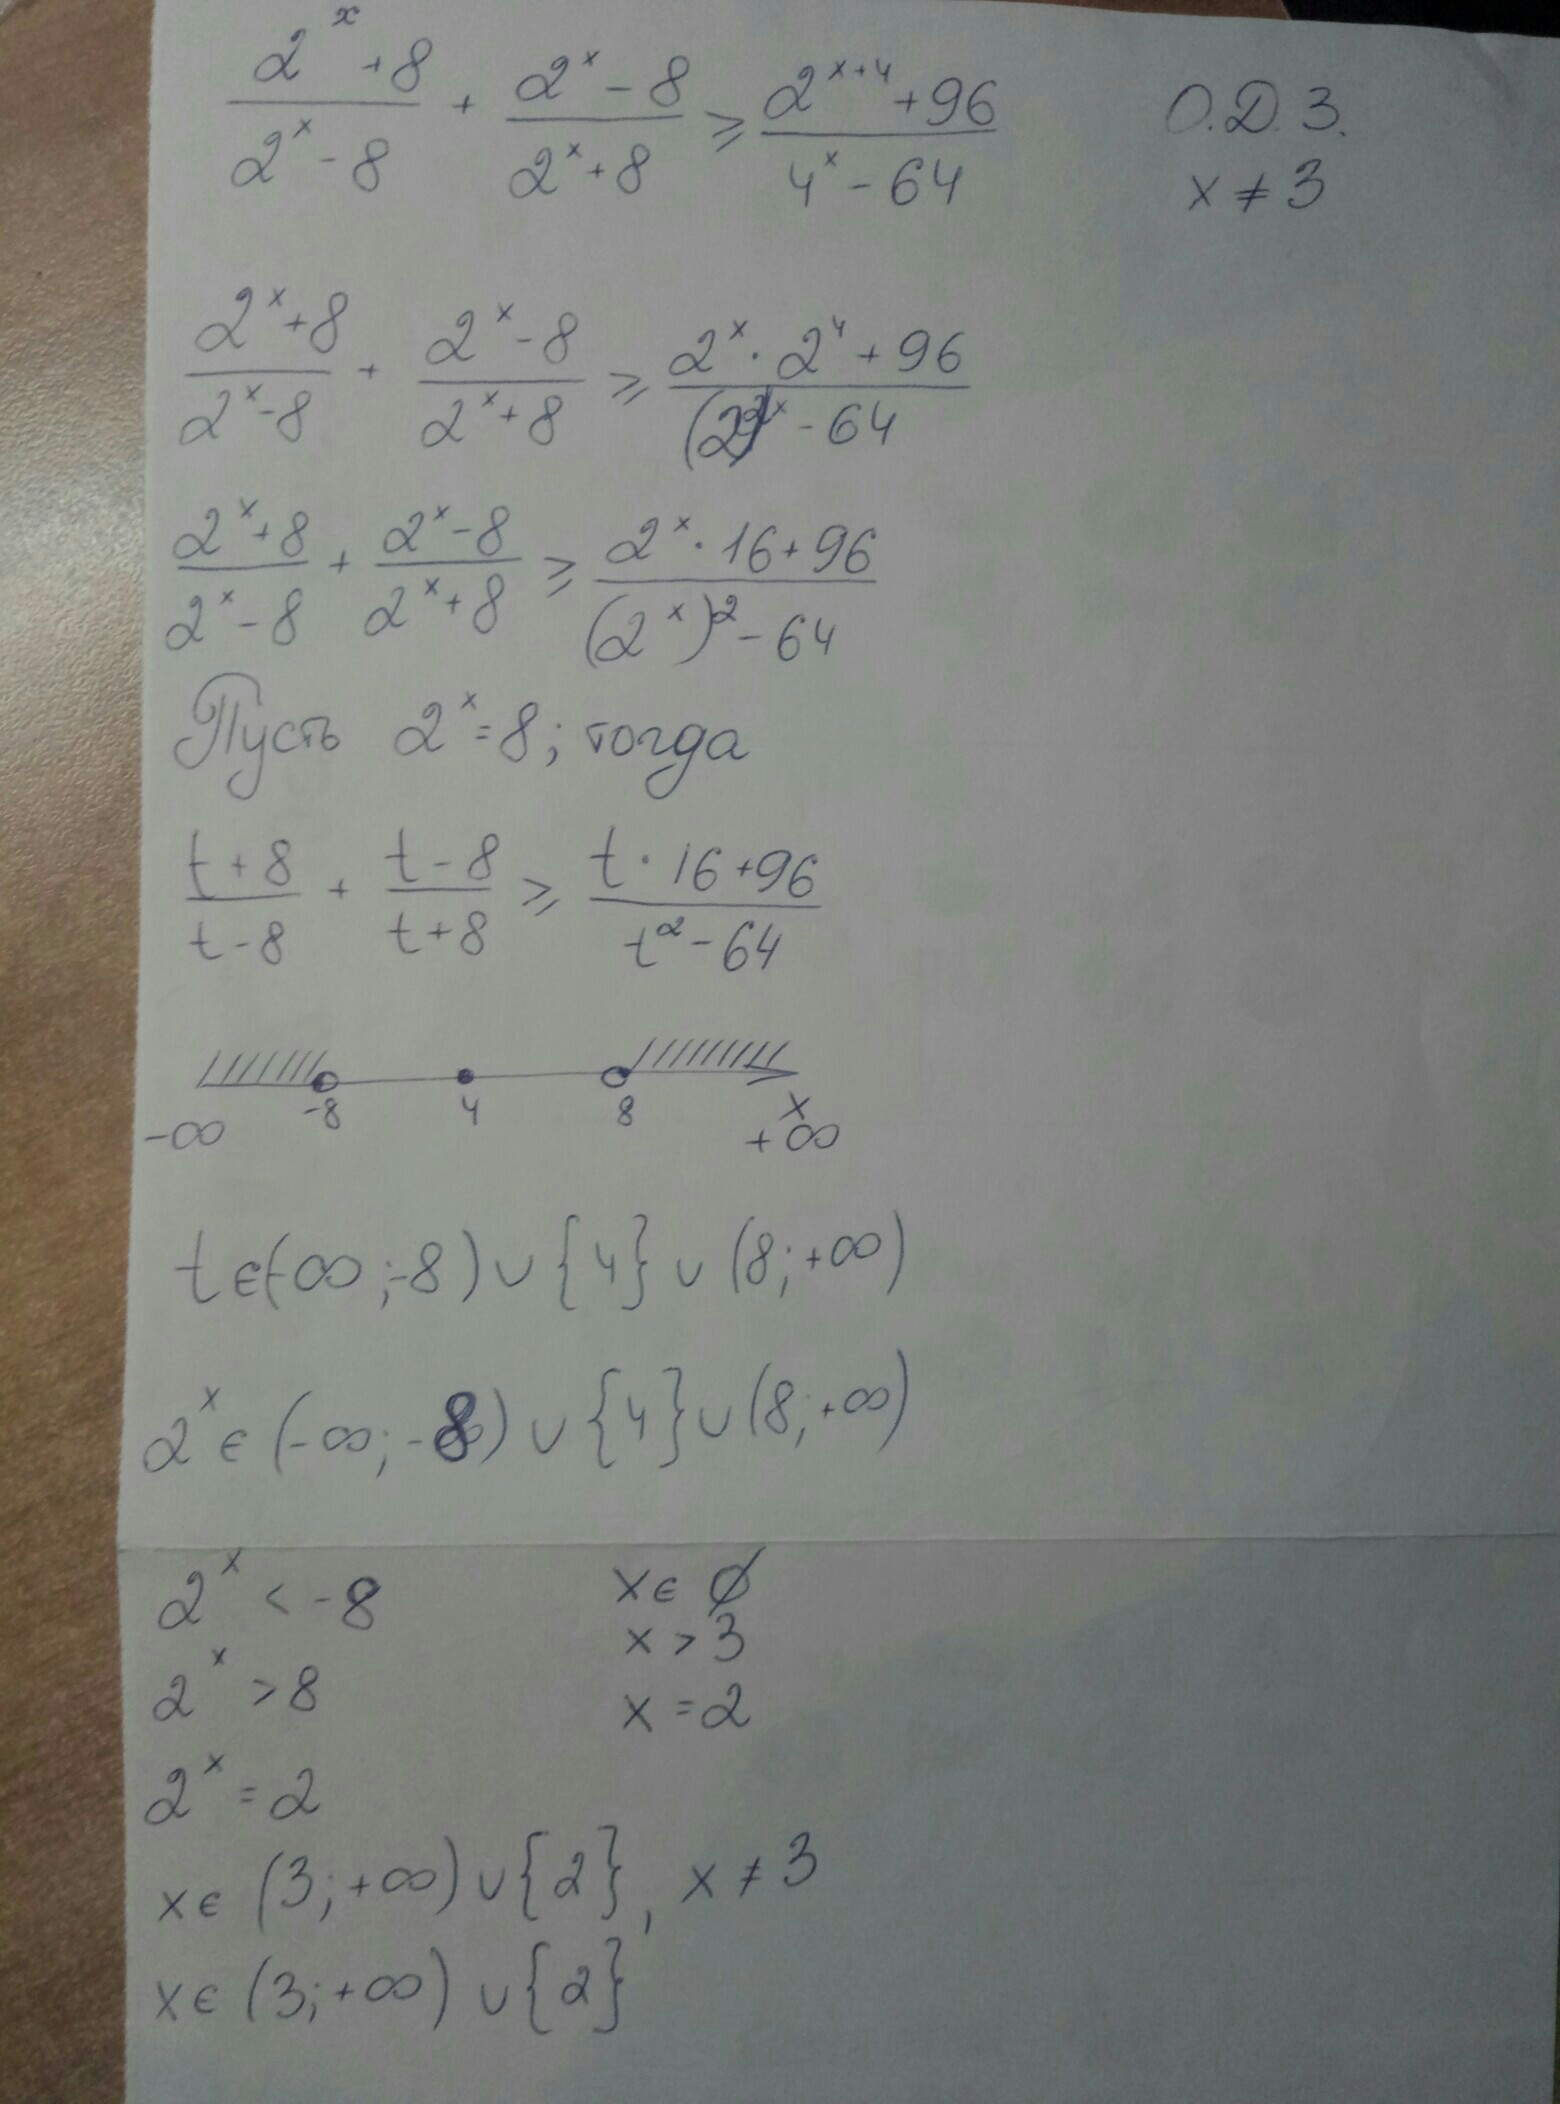 (2^x + 8)/(2^x - 8) + (2^x - 8)/(2^x + 8) ⩾ (2^(x+4) + 96)/(4^x - 64)
О.Д.З.
x ≠ 3
(2^x + 8)/(2^x - 8) + (2^x - 8)/(2^x + 8) ⩾ (2^x · 2^4 + 96)/((2^2)^x - 64)
(2^x + 8)/(2^x - 8) + (2^x - 8)/(2^x + 8) ⩾ (2^x · 16 + 96)/((2^x)^2 - 64)
Пусть 2^x = 8; тогда
(t + 8)/(t - 8) + (t - 8)/(t + 8) ⩾ (t · 16 + 96)/(t^2 - 64)
-∞ -8 4 8 x +∞
t ∈ (-∞; -8) ∪ {4} ∪ (8; +∞)
2^x ∈ (-∞; -8) ∪ {4} ∪ (8; +∞)
2^x < -8 x ∈ ∅
2^x > 8 x > 3
2^x = 2 x = 2
x ∈ (3; +∞) ∪ {2}, x ≠ 3
x ∈ (3; +∞) ∪ {2}